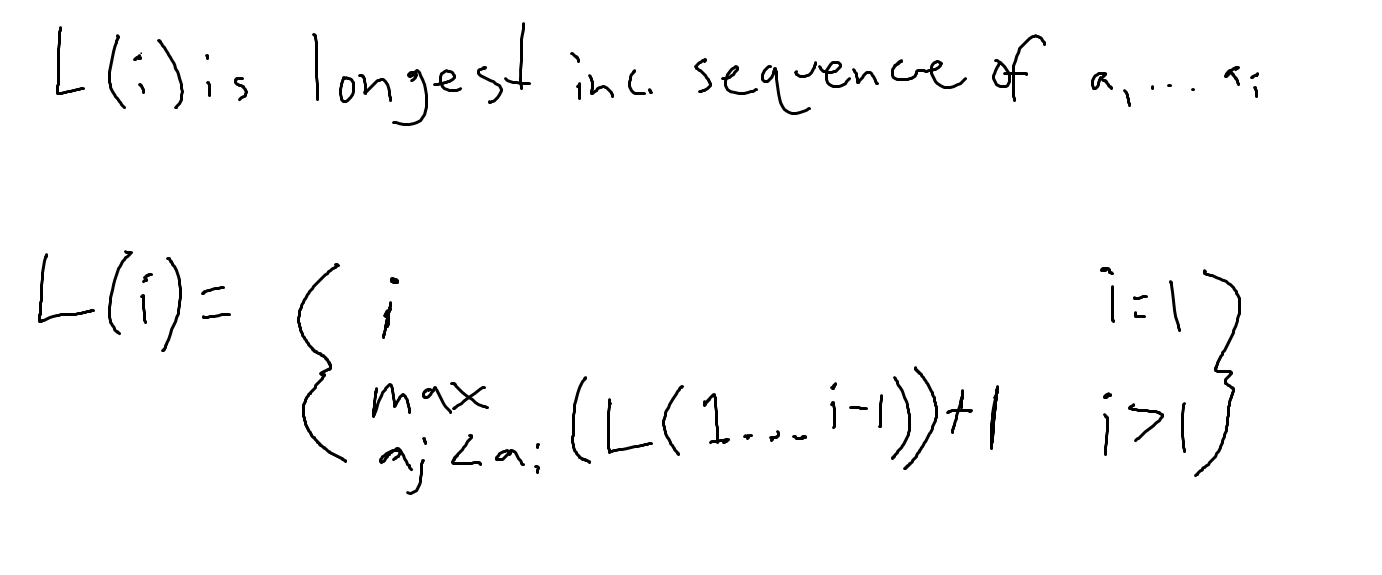 L(i) is longest inc. sequence of a₁ ... aᵢ
L(i) = { i i=1
max aⱼ < aᵢ (L(1... i-1))+1 i>1 }